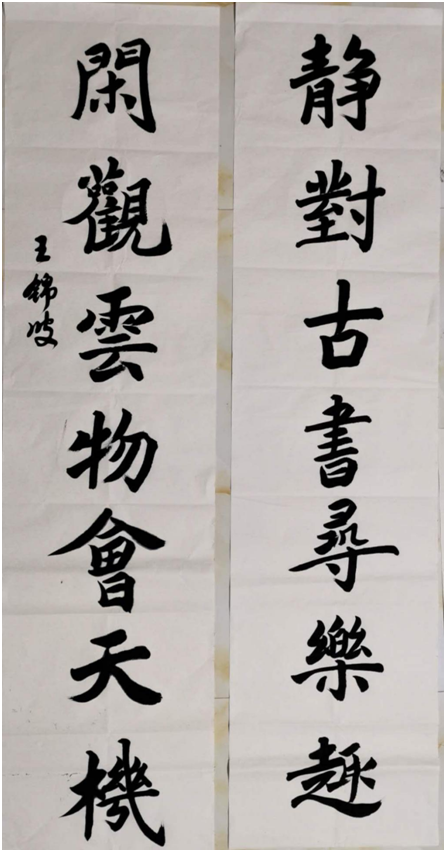 静對古書尋樂趣
閑觀雲物會天機
王錦波